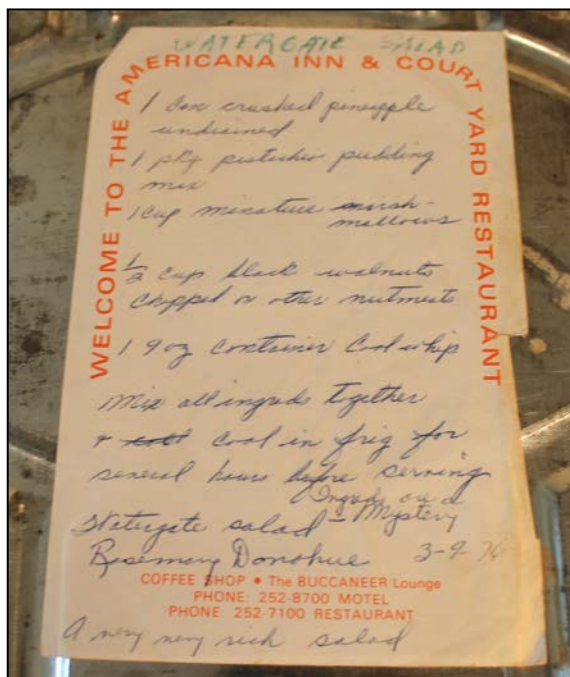 WATERGATE SALAD
WELCOME TO THE AMERICANA INN & COURT YARD RESTAURANT
1 can crushed pineapple
undrained
1 pkg pistachio pudding
mix
1 cup minature marsh-
mallows
1/2 cup black walnuts
chopped or other nutmeats
1 9 oz container Cool whip
Mix all ingreds together
+ cool in frig for
several hours before serving
Ingreds are a
Watergate salad - Mystery
Rosemary Donohue 3-9-76
COFFEE SHOP • The BUCCANEER Lounge
PHONE: 252-8700 MOTEL
PHONE: 252-7100 RESTAURANT
A very very rich salad